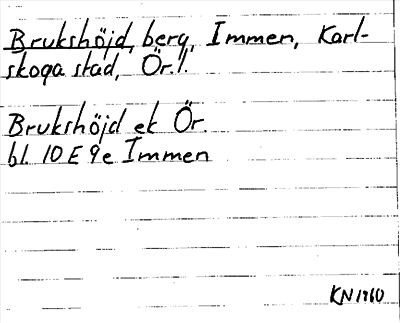 Brukshöjd, berg, Immen, Karl-
skoga stad, Ör.l.
Brukshöjd ek Ör.
bl. 10 E 9e Immen
KN 1960